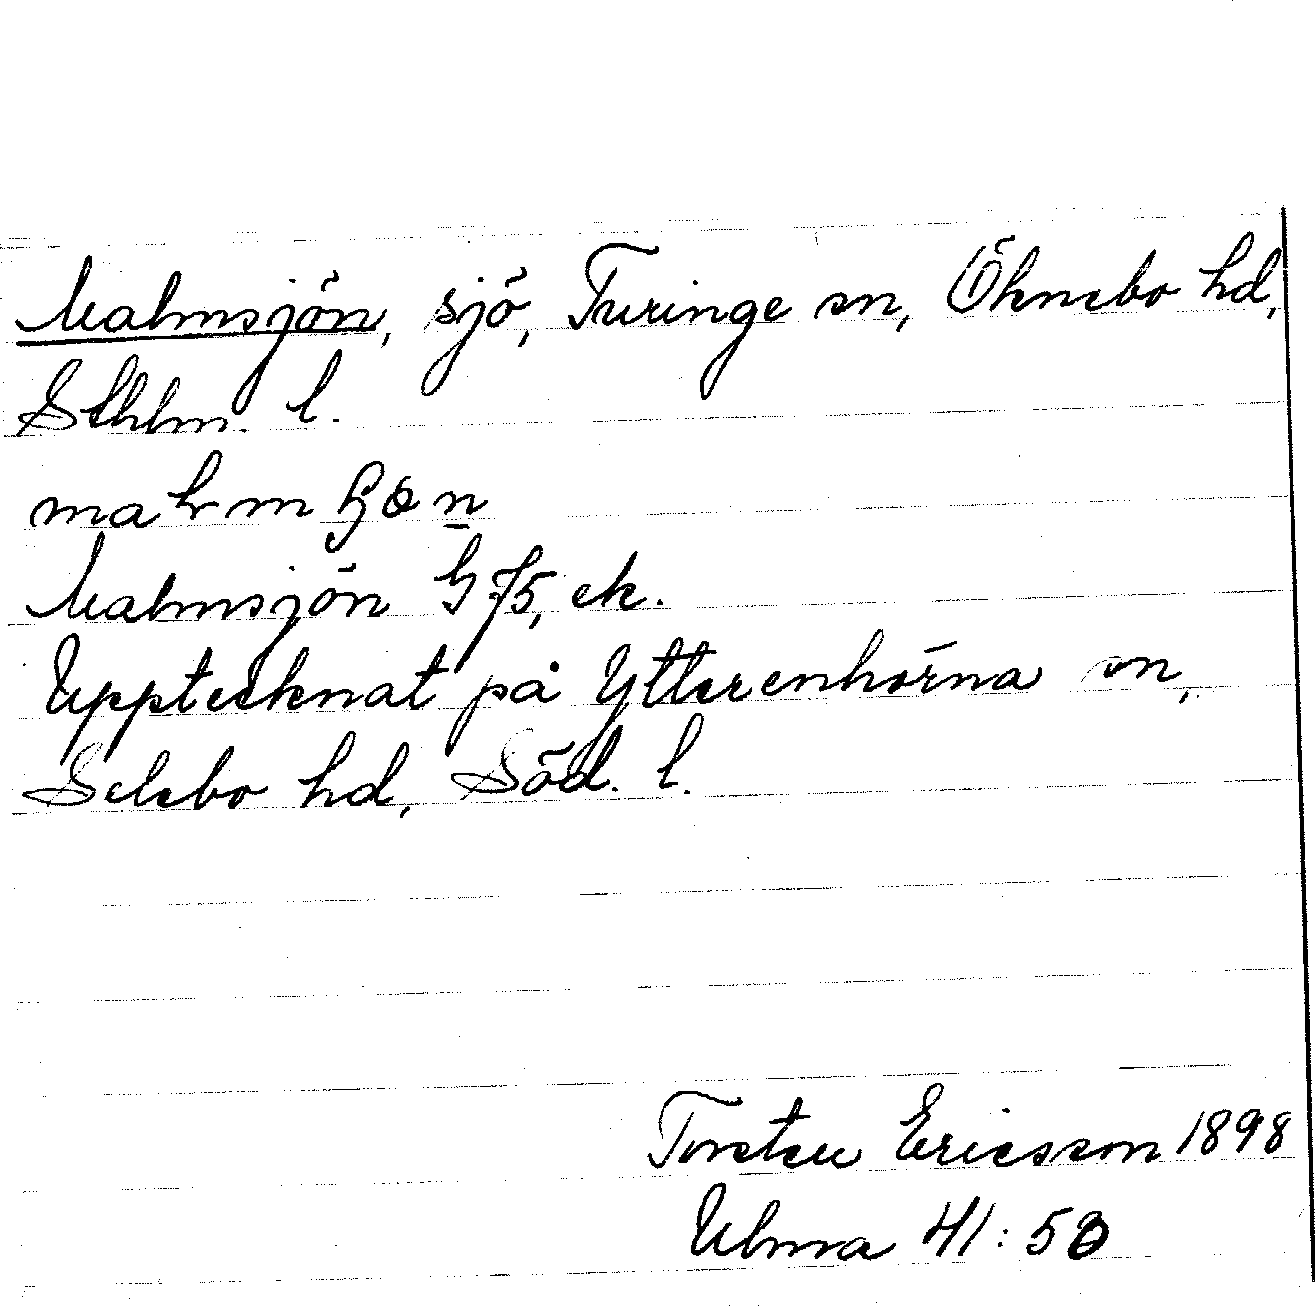 Malmsjön, sjö, Turinge sn, Öknebo hd,
Sthlm. l.
Malmsjön G 75, ek.
Upptecknat på Ytterenhörna sn,
Selebo hd, Söd. l.
Torsten Ericsson 1898
Ulma 41:50